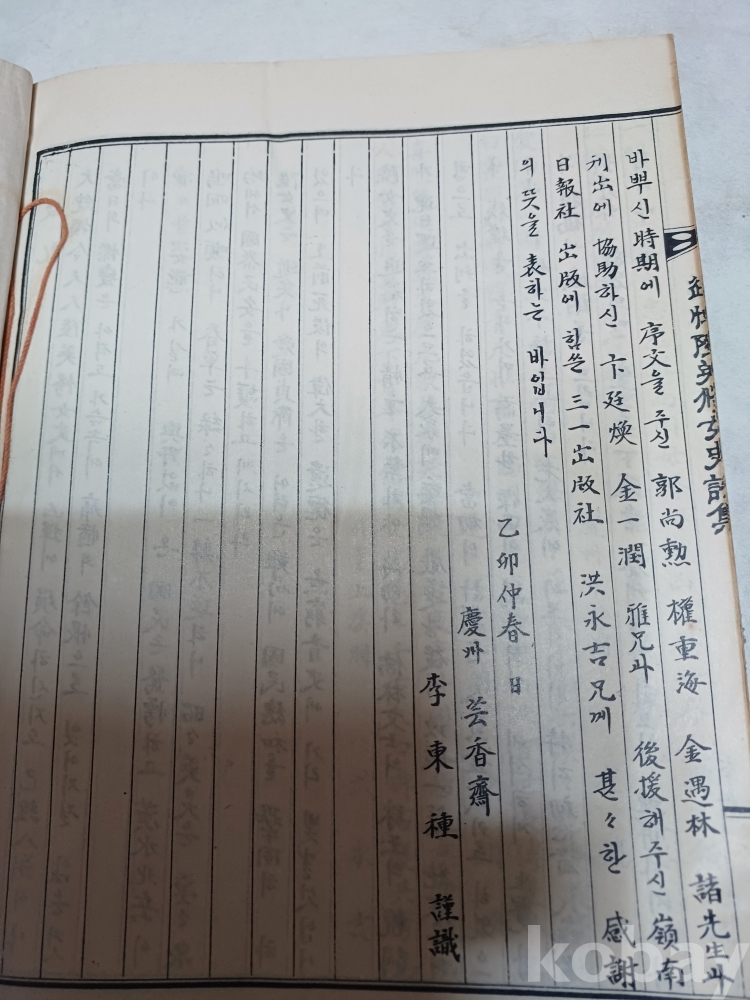 追悼陸英修女史詩集
바쁘신 時期에 序文을 주신 郭尚勳 權重海 金遇林 諸先生과
刊出에 協助하신 卞廷煥 金一潤 雅兄과 後援해주신 嶺南
日報社 出版에 힘쓴 三一出版社 洪永吉兄께 甚々한 感謝
의 뜻을 表하는 바입니다
乙卯仲春 日
慶州 芸香齋
李東種 謹識
kobay